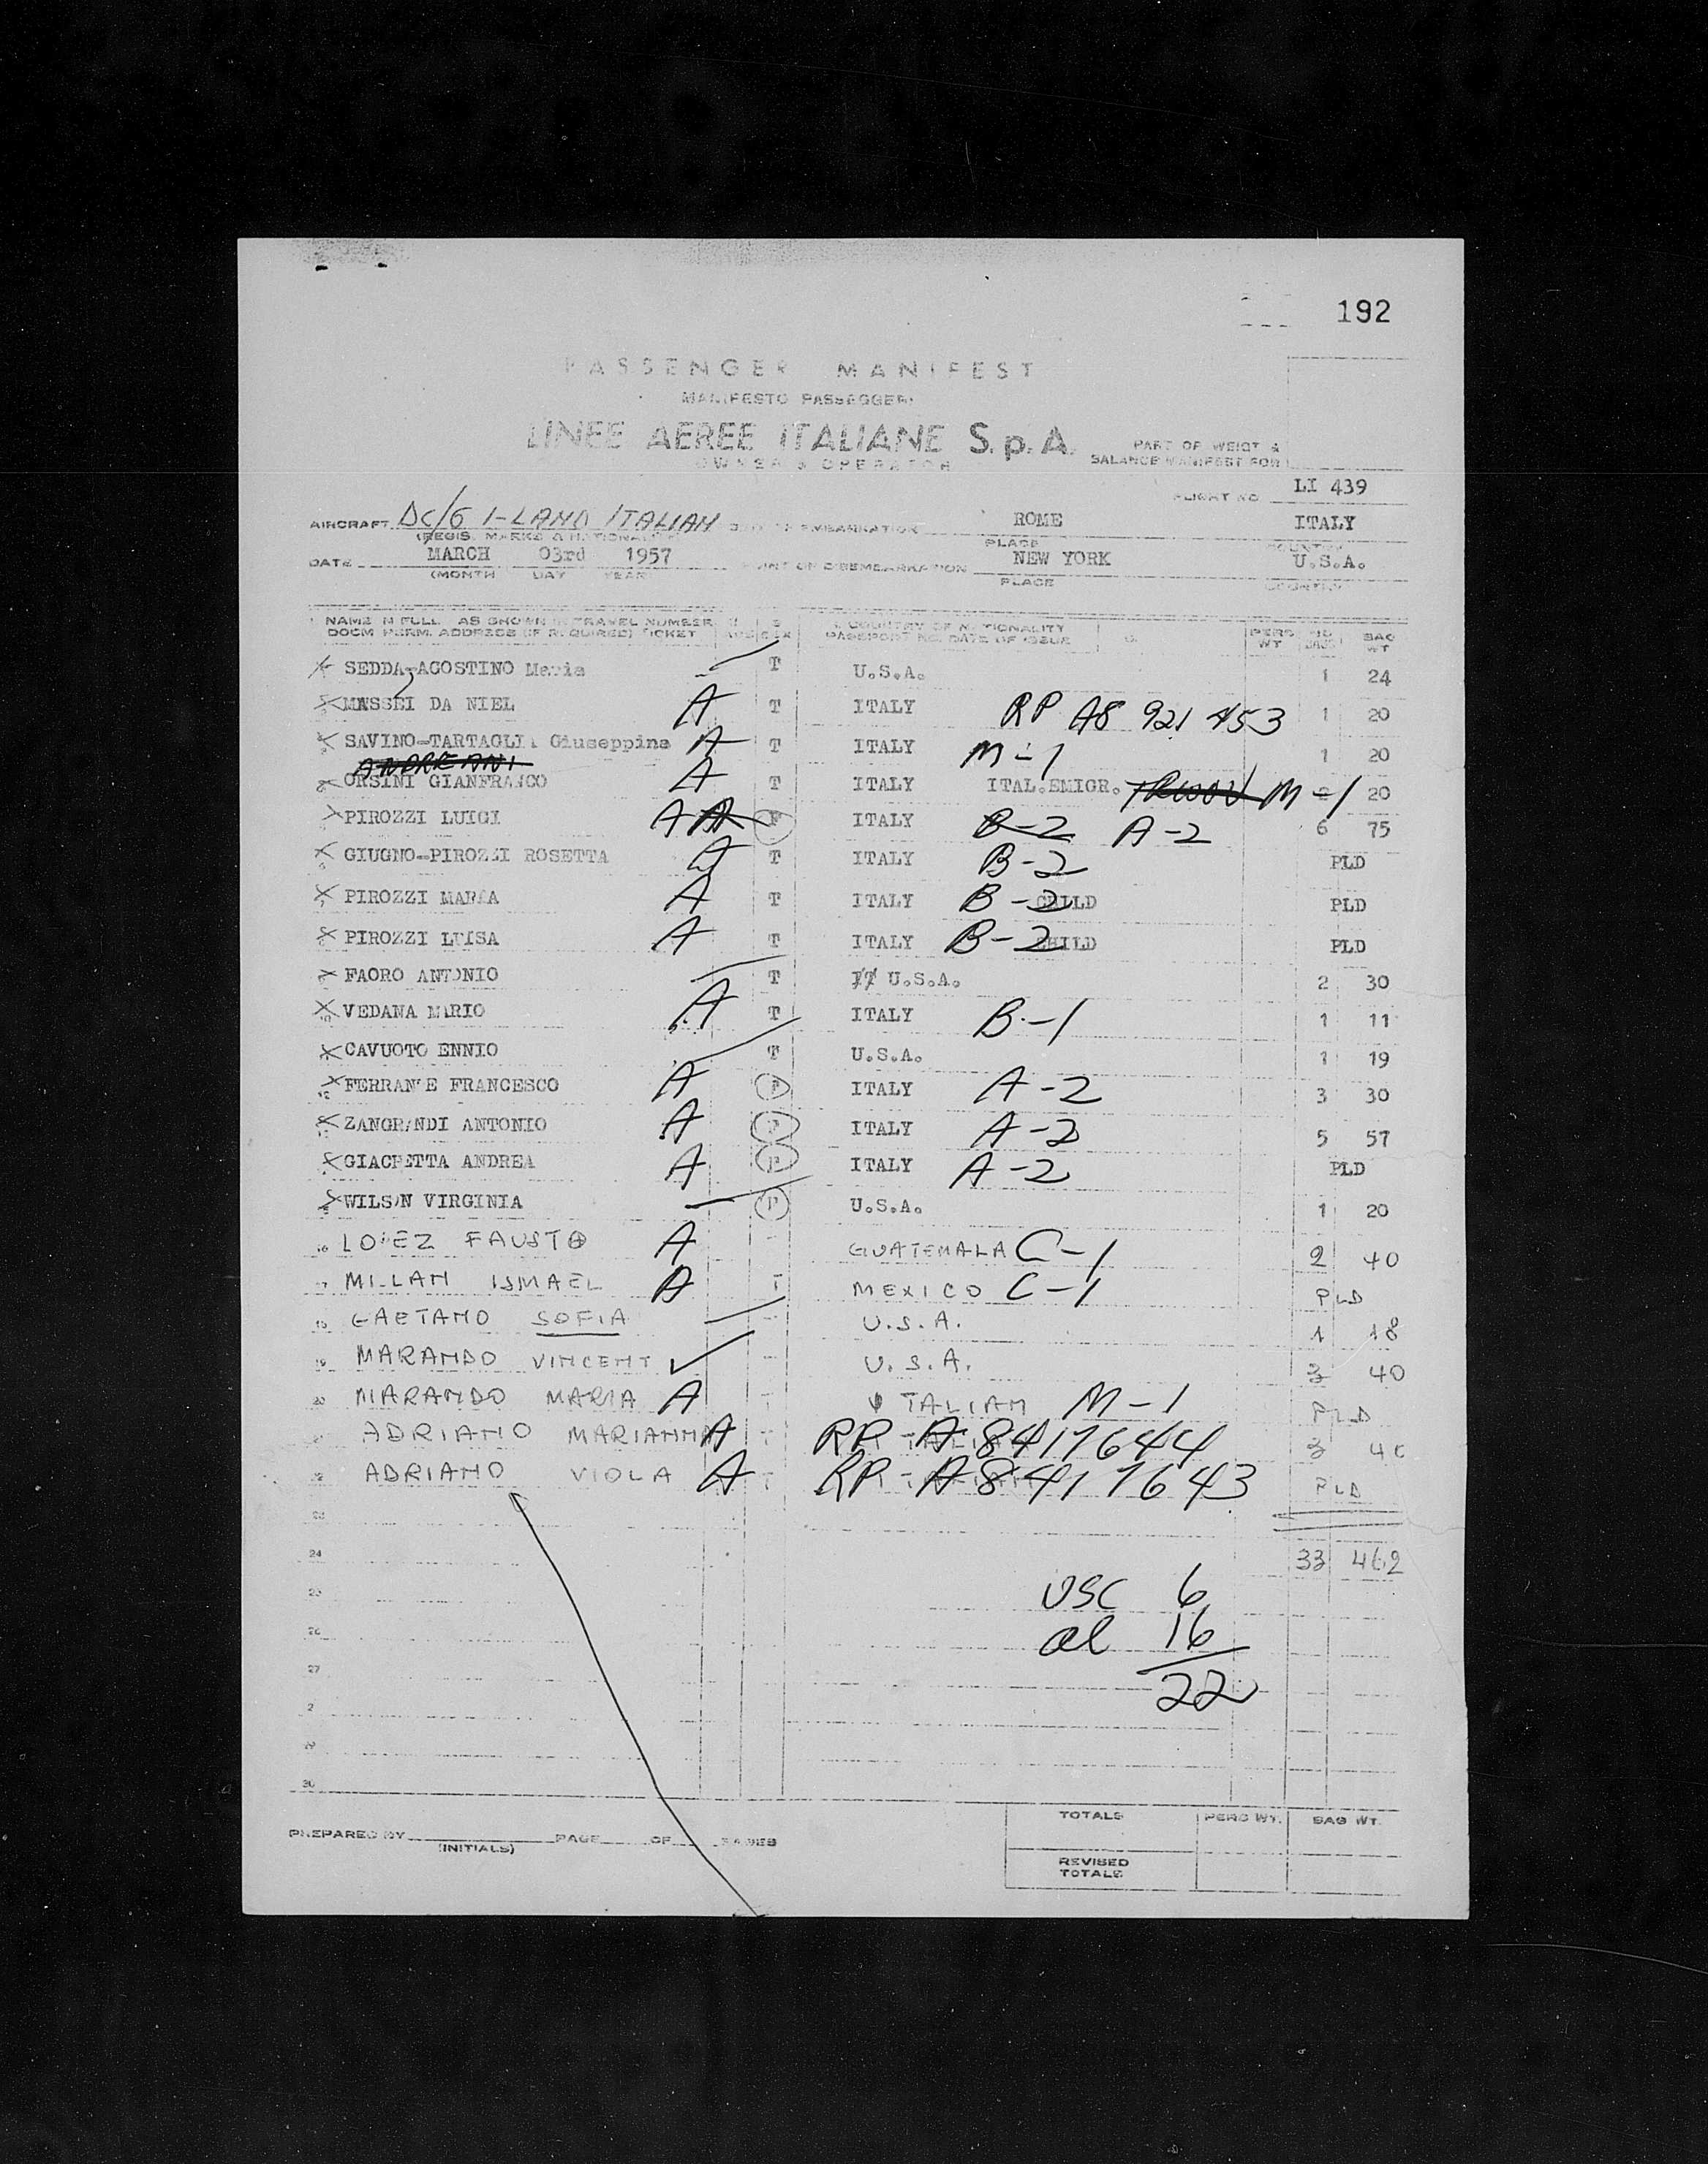 192
PASSENGER MANIFEST
MANIFESTO PASSEGGERI
LINEE AEREE ITALIANE S.p.A.
OWNER & OPERATOR
PART OF WEIGT &
BALANCE MANIFEST FOR
FLIGHT NO LI 439
AIRCRAFT DC/6 I-LAND ITALIAN EMBARKATION ROME ITALY
(REGIS. MARKS & NATIONALITY) PLACE COUNTRY
DATE MARCH 03rd 1957 POINT OF DISEMBARKATION NEW YORK U.S.A.
(MONTH DAY YEAR) PLACE COUNTRY
NAME IN FULL AS SHOWN IN TRAVEL NUMBER COUNTRY OF NATIONALITY PERS. BAG
DOCM PERM. ADDRESS (IF REQUIRED) TICKET SEX PASSPORT NO. DATE OF ISSUE WT WT
SEDDA-AGOSTINO Maria T U.S.A. 1 24
MASSEI DA NIEL A T ITALY RP A8 921 453 1 20
SAVINO-TARTAGLIA Giuseppina A T ITALY M-1 1 20
ANDREANI
ORSINI GIANFRANCO A T ITALY ITAL.EMIGR. M-1 20
PIROZZI LUIGI A F ITALY B-2 A-2 6 75
GIUGNO-PIROZZI ROSETTA A T ITALY B-2 PLD
PIROZZI MARIA A T ITALY B-2 CHILD PLD
PIROZZI LUISA A T ITALY B-2 CHILD PLD
FAORO ANTONIO T IT U.S.A. 2 30
VEDANA MARIO A T ITALY B-1 1 11
CAVUOTO ENNIO T U.S.A. 1 19
FERRANTE FRANCESCO A F ITALY A-2 3 30
ZANGRANDI ANTONIO A F ITALY A-2 5 57
GIACHETTA ANDREA A F ITALY A-2 PLD
WILSON VIRGINIA F U.S.A. 1 20
16 LOPEZ FAUSTO A GUATEMALA C-1 2 40
17 MILLAN ISMAEL A T MEXICO C-1 PLD
18 GAETANO SOFIA U.S.A. 1 18
19 MARANDO VINCENT ✓ U.S.A. 3 40
20 MARANDO MARIA A ITALIAN M-1 PLD
ADRIANO MARIANNA A T RP-A8417644 3
22 ADRIANO VIOLA A T RP-A8417643 PLD
23
24 33 462
25 USC 6
26 al 16
27 22
2
29
30
TOTALS PERS WT. BAG WT.
PREPARED BY PAGE OF PAGES
(INITIALS)
REVISED
TOTALS